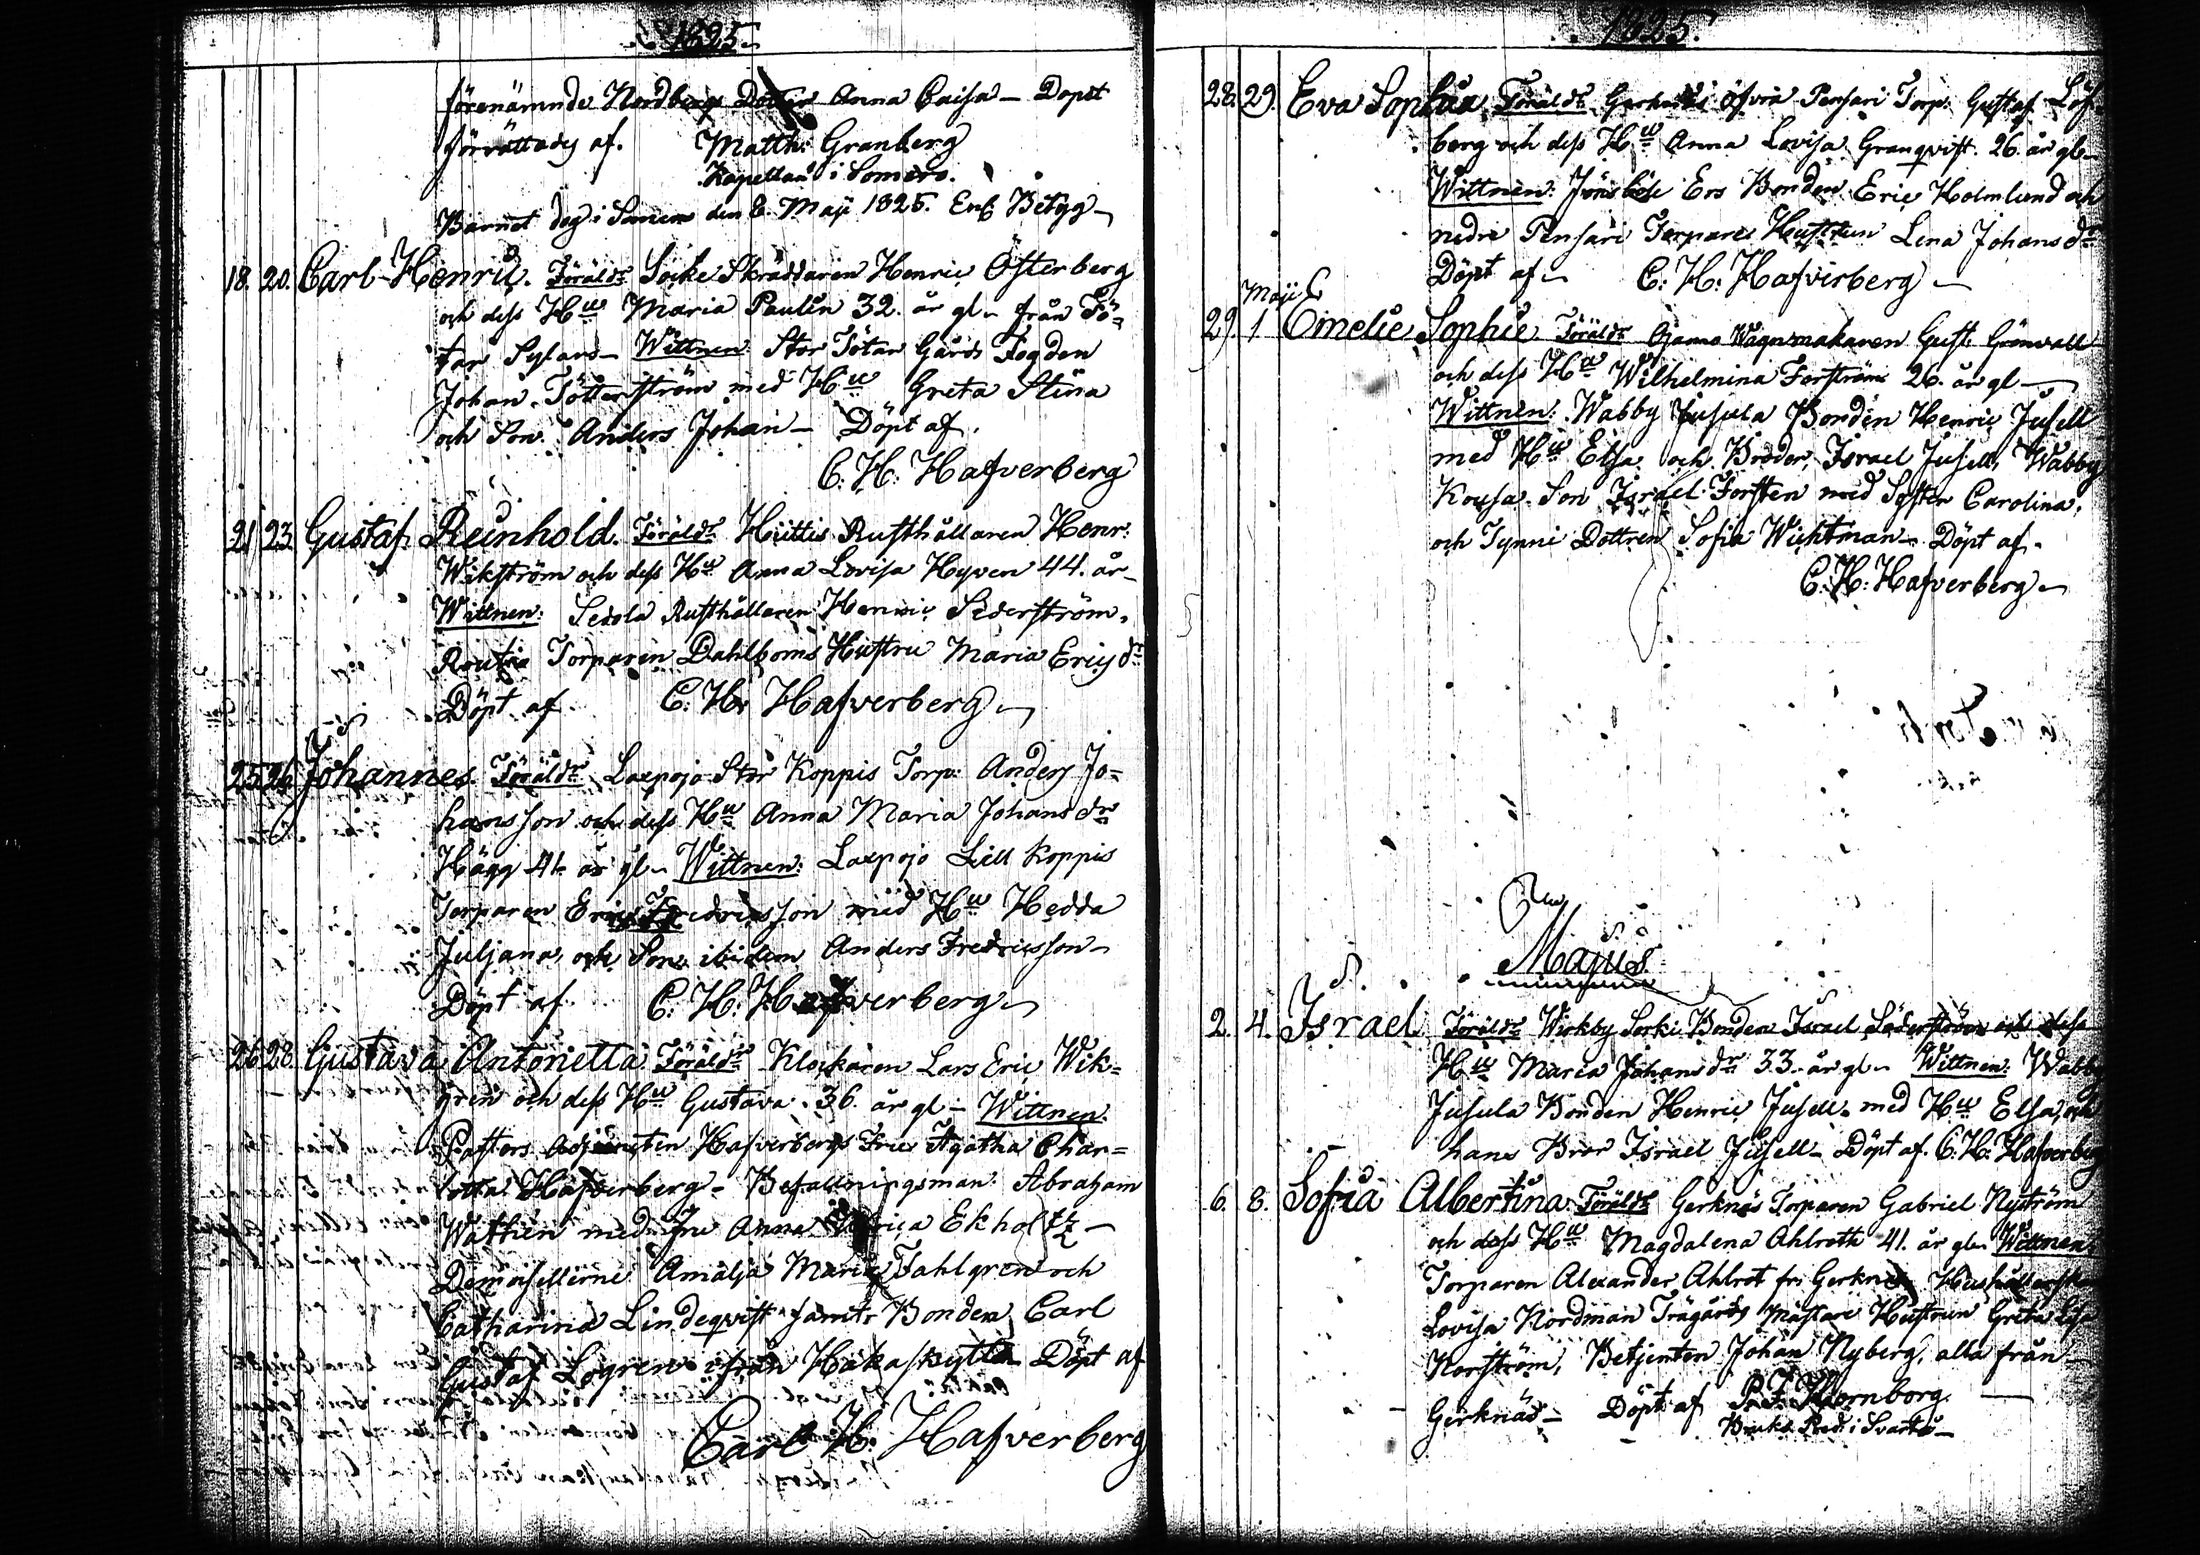 1825.
förenämnde Nordbergs Dotter Anna Caisa – Dopet
förrättades af. Matth: Granberg
Kapellan i Somero.
Barnet dog i Somero den 8 Maji 1825. Enl. Betyg –
18. 20. Carl Henric. Föräldr Skräddaren Henric Österberg
och dess Hu Maria Paulin 32. år gl – från Tö=
tar Wittnen: Stor Tötar Gårds Fogden
Johan Tötterström med Hu Greta Stina
och Son Anders Johan – Döpt af.
C. H. Hafverberg
21 23 Gustaf Reinhold. Föräldr Hiittis Rusthållaren Henr:
Wikström och dess Hu Anna Lovisa Hyven 44. år –
Wittnen: Rusthållaren Henric Sederström,
Torparen Dahlboms Hustru Maria Ericsdr
Döpt af C. H. Hafverberg –
25 26 Johannes Föräldr Laxpojo Stor Koppis Torp: Anders Jo=
hansson och dess Hu Anna Maria Johansdr
Hägg 41 år gl – Wittnen: Laxpojo Lill Koppis
Torparen Eric Fredricsson med Hu Hedda
Juljana, och Son ibidem Anders Fredricsson –
Döpt af C. H. Hafverberg –
26 28 Gustava Antonietta Föräldr Klockaren Lars Eric Wik=
gren och dess Hu Gustava 36 år gl – Wittnen:
Pastors Adjuncten Hafverbergs Fru Agatha Char=
lotta Hafverberg – Befallningsman Abraham
Wathén med Fru Anna Ulrica Ekholtz –
Demoisellerne Amalja Maria Tahlgren och
Catharina Lindeqvist samt Bonden Carl
Gustaf Logren ifrån Hakaskyttä Döpt af
Carl H. Hafverberg
1825.
28. 29. Eva Sophia Föräldr Gerknäs öfvra Pensari Torp: Gustaf Löf
berg och dess Hu Anna Lovisa Granqvist. 26. år gl –
Wittnen: Jönsböle Ers Bonden Eric Holmlund och
nedre Pensari Torpare Hustrun Lena Johansdr
Döpt af – C. H. Hafverberg –
Maji
29. 1 Emelie Sophie Föräldr Ojamo Wagnmakaren Gust. Grönvall
och dess Hu Wilhelmina Forström 26. år gl –
Wittnen: Wabby Jusula Bonden Henric Jusell
med Hu Elsa och Broder Israel Jusell, Wabby
Kousa Son Israel Forstén med Syster Carolina,
och Tynni Dottren Sofia Wichtman – Döpt af –
C. H. Hafverberg –
Majus
2. 4. Israel Föräldr Wirkby Sorki Bonden Israel Söderström och dess
Hu Maria Johansdr 33. år gl – Wittnen: Wabby
Jusula Bonden Henric Jusell med Hu Elsa, och
hans Bror Israel Jusell – Döpt af C. H. Hafverberg
6. 8. Sofia Albertina Föräldr Gerknäs Torparen Gabriel Nyström
och dess Hu Magdalena Ahlroth 41. år gl – Wittnen:
Torparen Alexander Ahlrot fr: Gerknäs Hushållerskan
Lovisa Nordman Trägårds Mästare Hustrun Greta Lisa
Norström, Betjenten Johan Nyberg, alla från –
Gerknäs – Döpt af P. F. Hornborg
Bruks Pred. i Svartå –